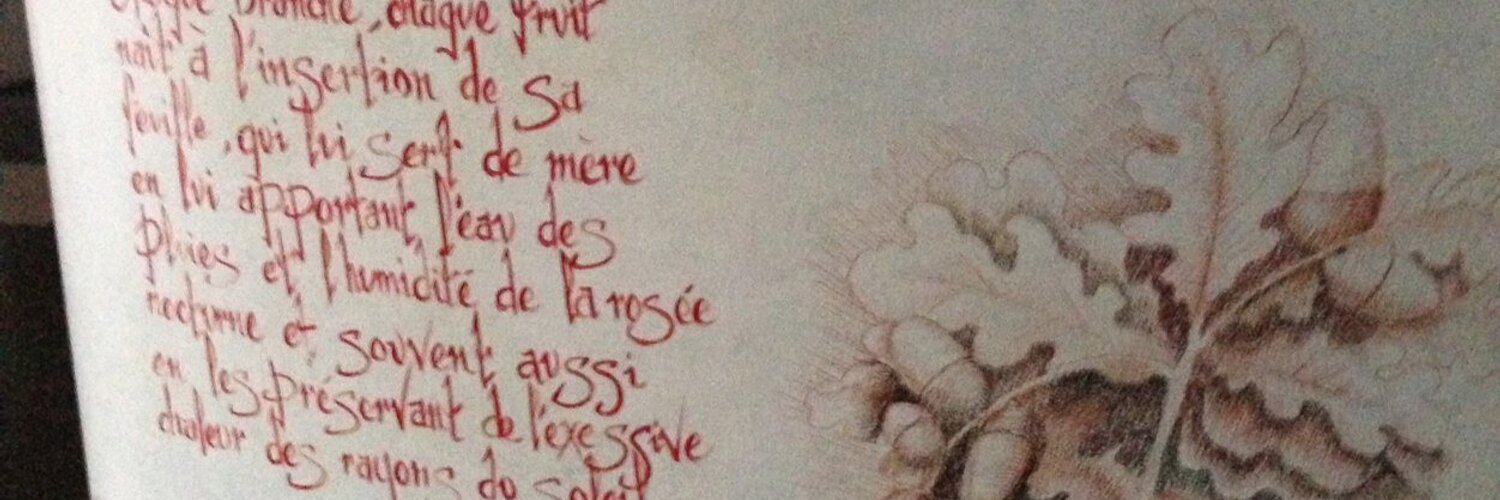 chaque branche, chaque fruit
naît à l'insertion de sa
feuille, qui lui sert de mère
en lui apportant, l'eau des
pluies et l'humidité de la rosée
nocturne et souvent aussi
en les préservant de l'exessive
chaleur des rayons du soleil